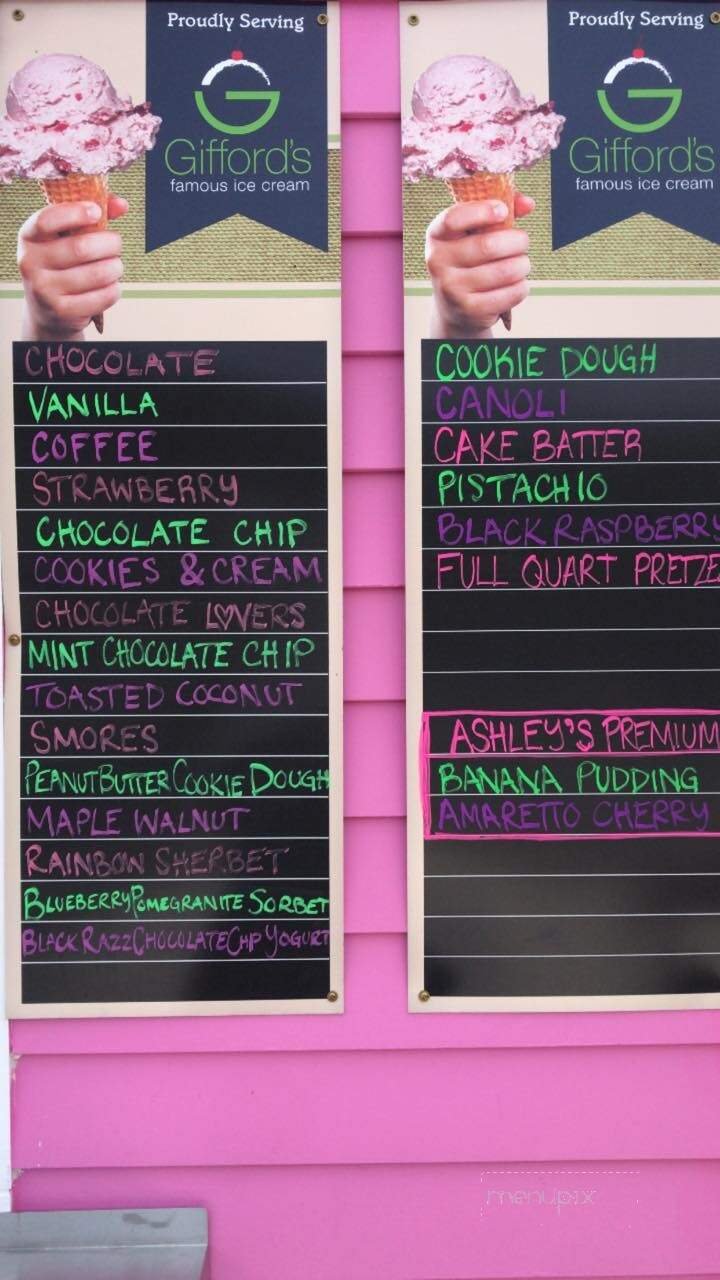 Proudly Serving
Gifford's
famous ice cream
CHOCOLATE
VANILLA
COFFEE
STRAWBERRY
CHOCOLATE CHIP
COOKIES & CREAM
CHOCOLATE LOVERS
MINT CHOCOLATE CHIP
TOASTED COCONUT
SMORES
PEANUTBUTTER COOKIE DOUGH
MAPLE WALNUT
RAINBOW SHERBET
BLUEBERRY POMEGRANITE SORBET
BLACK RAZZ CHOCOLATE CHIP YOGURT
Proudly Serving
Gifford's
famous ice cream
COOKIE DOUGH
CANOLI
CAKE BATTER
PISTACHIO
BLACK RASPBERRY
FULL QUART PRETZE
ASHLEY'S PREMIUM
BANANA PUDDING
AMARETTO CHERRY
menupix